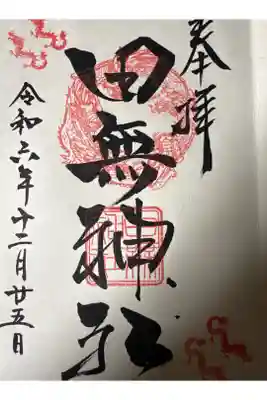 奉拝
田無神社
令和六年十二月廿五日